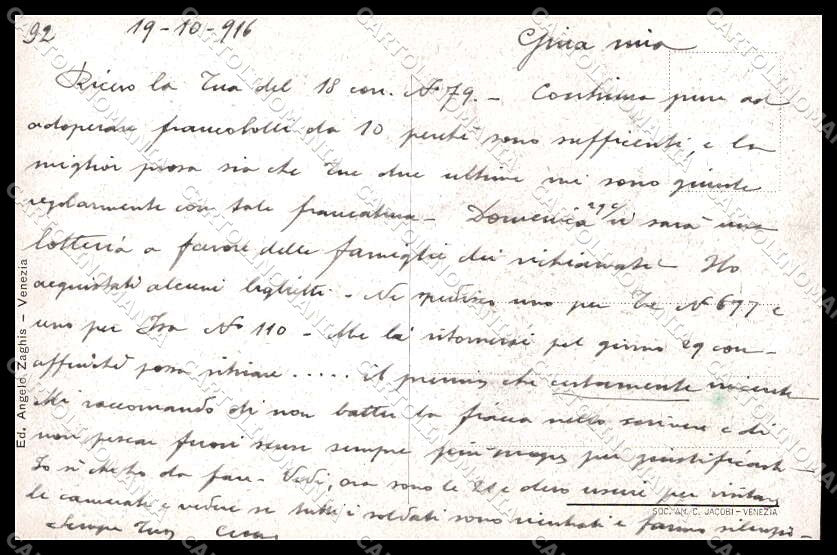 92 19-10-916 Gina mia
Ricevo la Tua del 18 corr. N° 79. - Continua pure ad
adoperare francobolli da 10 perché sono sufficienti, e la
miglior prova sia che Tue due ultime mi sono giunte
regolarmente con tale francatura - Domenica 29 c/ vi sarà una
lotteria a favore delle famiglie dei richiamati. Ho
acquistati alcuni biglietti. - Ne spedisco uno per Te N° 677 e
uno per N° 110 - Me la ritornerai pel giorno 29 corr.
affinché possa ritirare ..... il premio che certamente
Mi raccomando di non batter la fiacca nello scrivere e di
non pescar fuori scuse sempre per
Io sì che ho da fare - Vedi, ora sono le 21 e devo uscire per visitar
le camerate e vedere se tutti i soldati sono rientrati e fanno
Sempre Tuo
Ed. Angelo Zaghis - Venezia
SOC. AM. C. JACOBI - VENEZIA
CARTOLINOMANIA